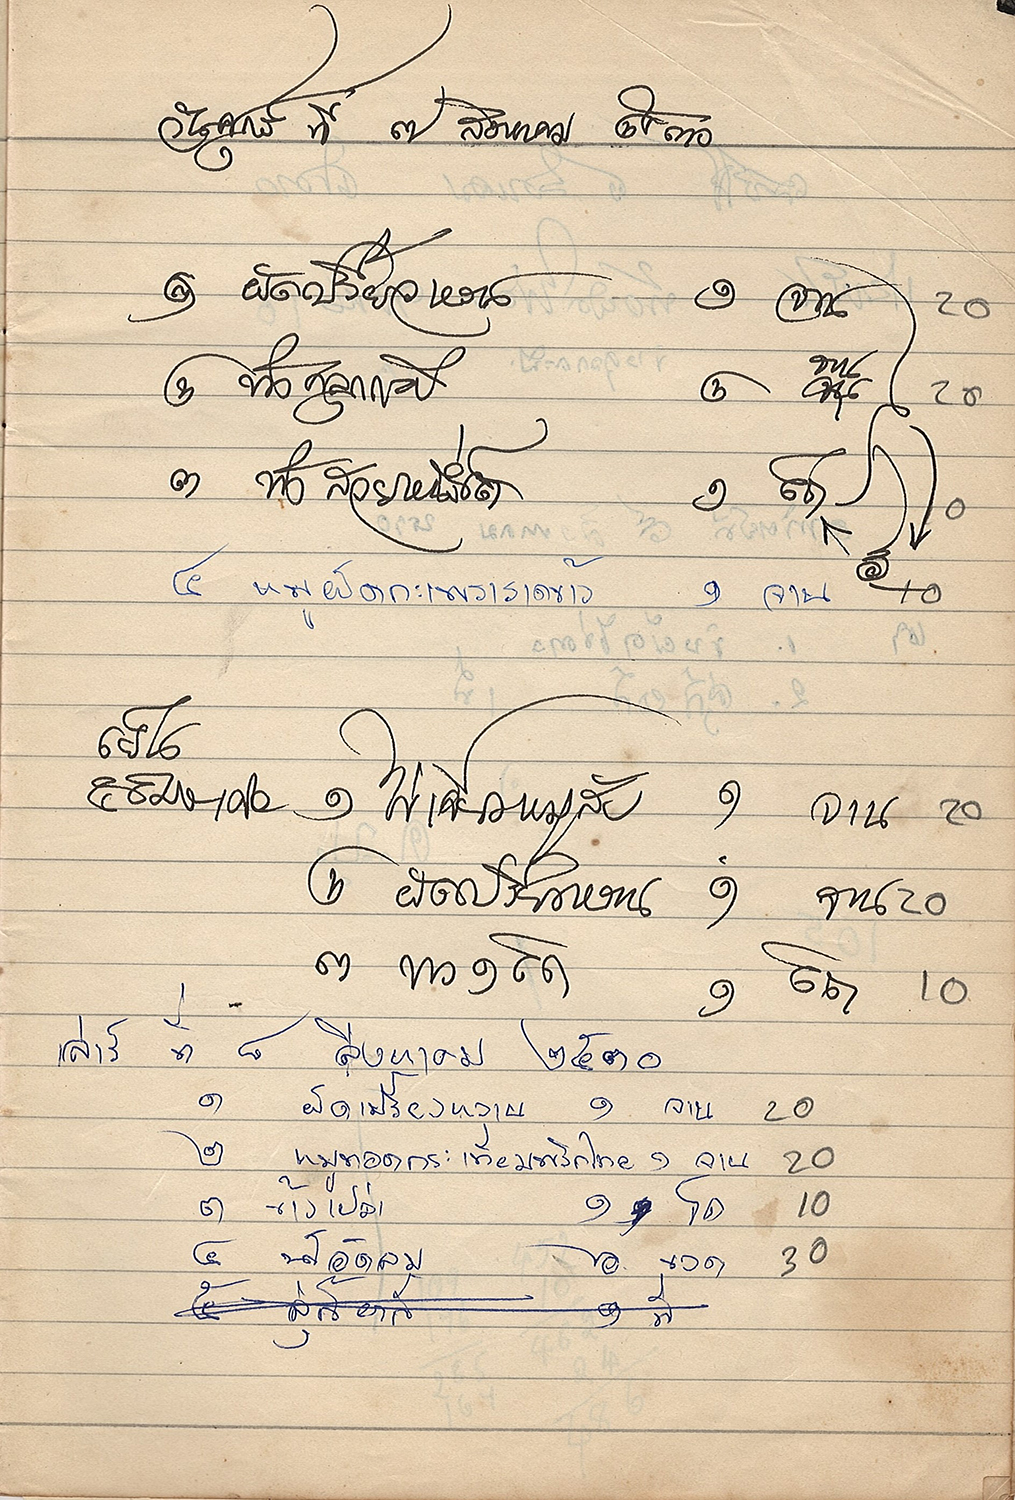 วันศุกร์ ที่ ๗ สิงหาคม ๒๕๓๐
๑ ผัดเปรี้ยวหวาน ๑ จาน 20
๒ ข้าวคลุกกะปิ ๒ จาน 20
๓ ข้าวสวย ๑ โถ 0
๔ หมูผัดกะเพราราดข้าว ๑ จาน 10
เย็น
๑ ไข่เจียวหมูสับ ๑ จาน 20
๒ ผัดเปรี้ยวหวาน ๑ จาน 20
๓ ข้าว ๑ โถ ๑ โถ 10
เสาร์ ที่ ๘ สิงหาคม ๒๕๓๐
๑ ผัดเปรี้ยวหวาน ๑ จาน 20
๒ หมูทอดกระเทียมพริกไทย ๑ จาน 20
๓ ข้าวเปล่า ๑ โถ 10
๔ น้ำอัดลม ๖ ขวด 30
๕ สุกี้ ๑ ที่